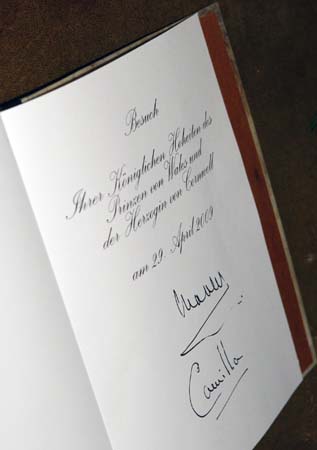 Besuch
Ihrer Königlichen Hoheiten des
Prinzen von Wales und
der Herzogin von Cornwall
am 29. April 2009
Charles
Camilla